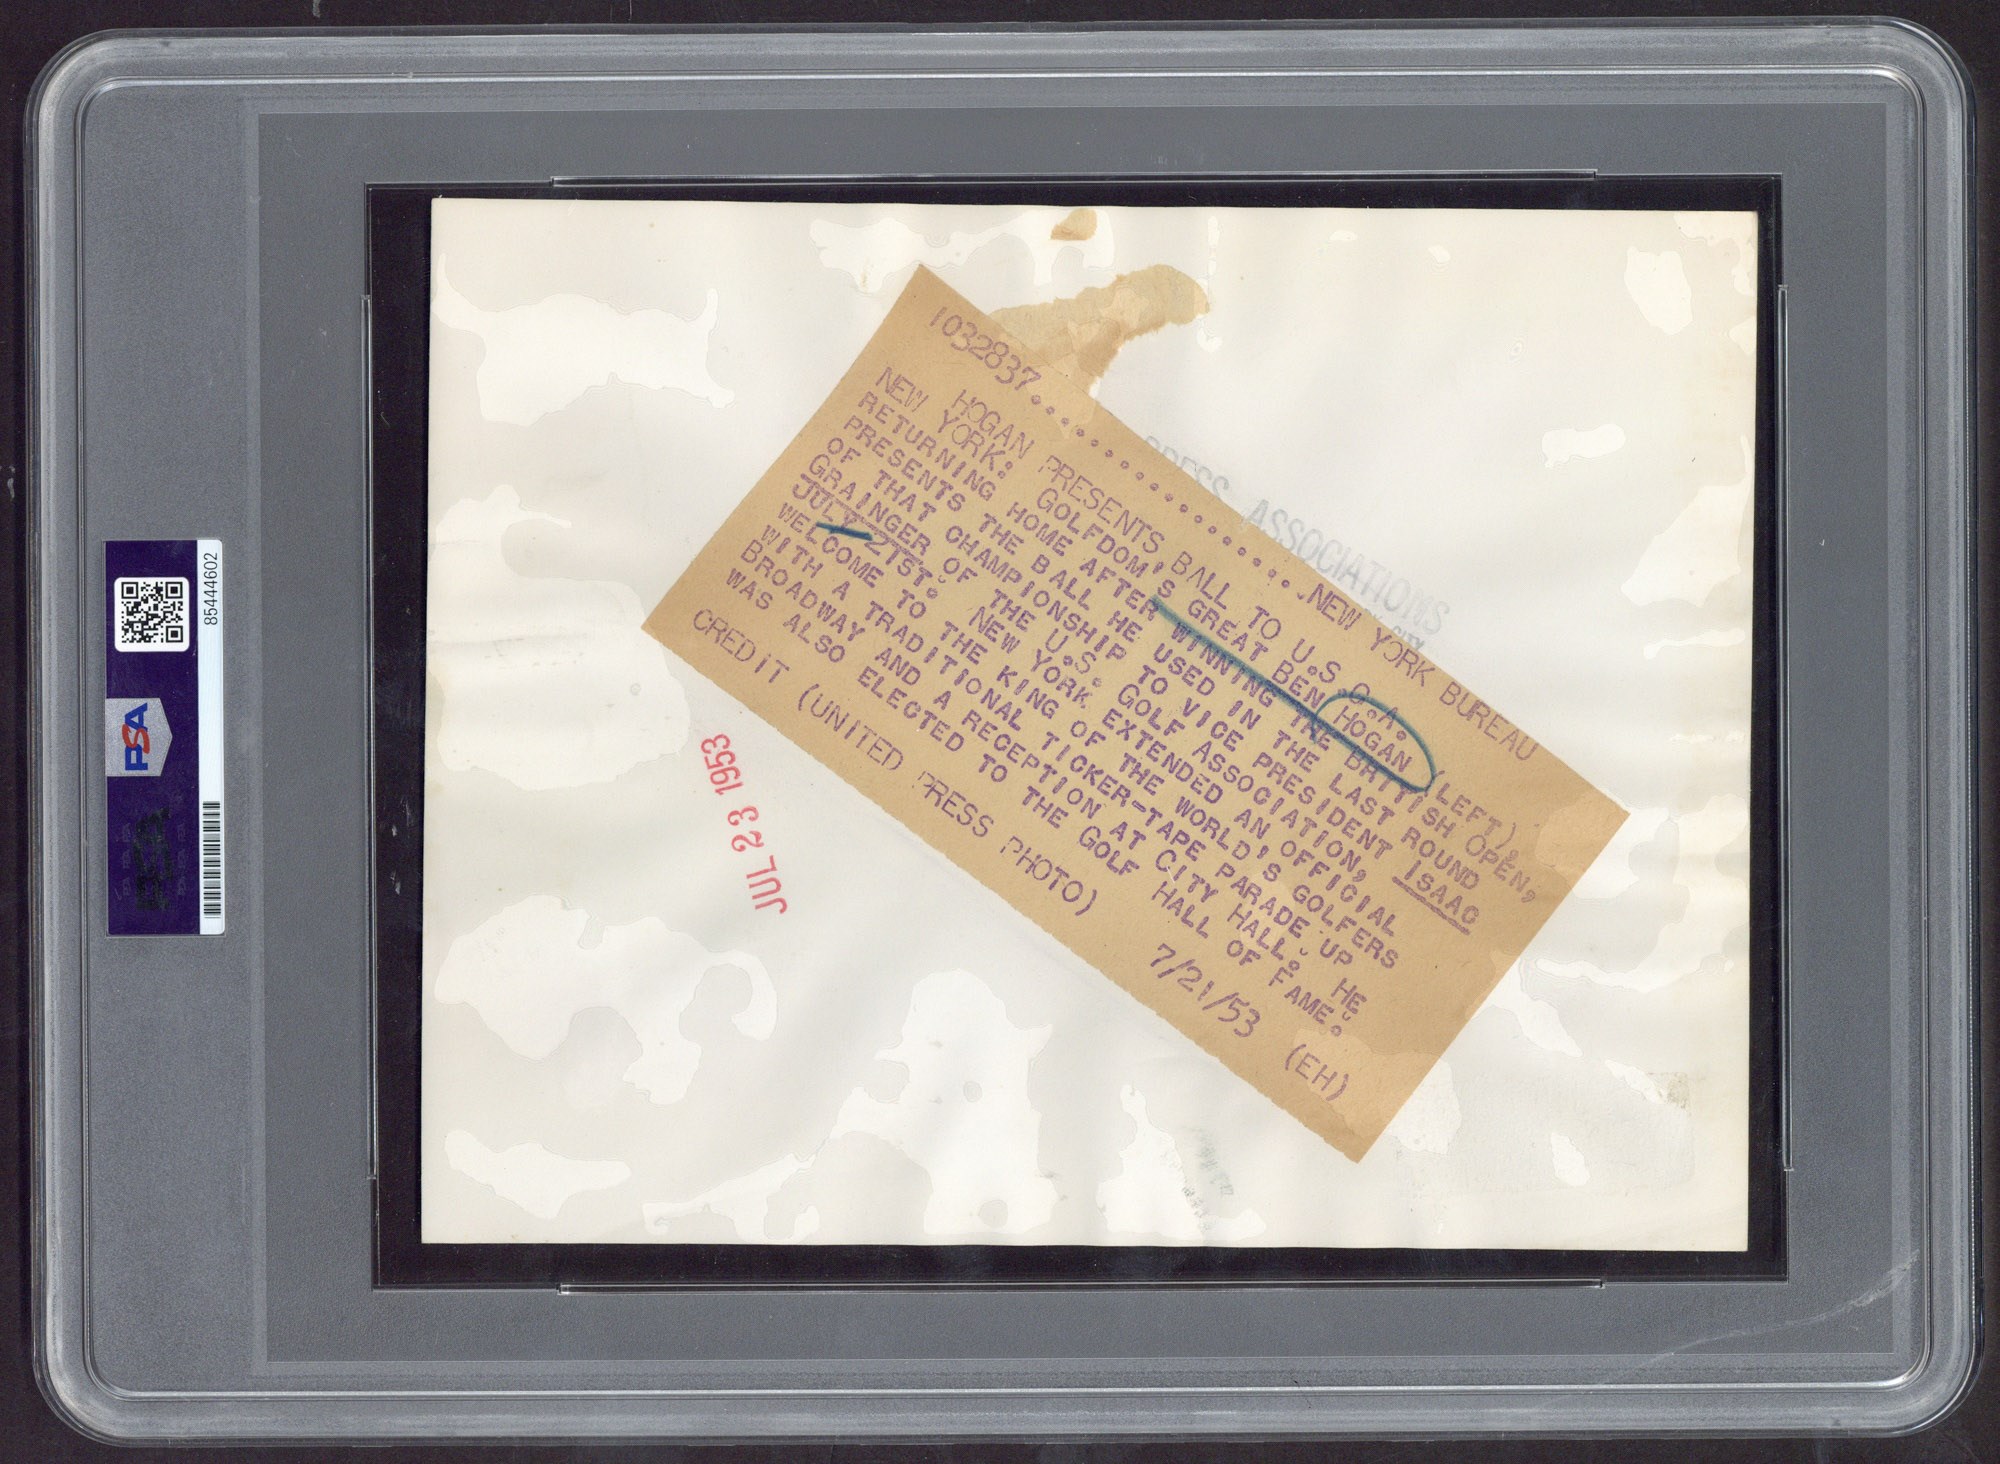 1032837..........................NEW YORK BUREAU
HOGAN PRESENTS BALL TO U.S.G.A.
NEW YORK: GOLFDOM'S GREAT BEN HOGAN (LEFT),
RETURNING HOME AFTER WINNING THE BRITISH OPEN,
PRESENTS THE BALL HE USED IN THE LAST ROUND
OF THAT CHAMPIONSHIP TO VICE PRESIDENT ISAAC
GRAINGER OF THE U.S. GOLF ASSOCIATION,
JULY 21ST. NEW YORK EXTENDED AN OFFICIAL
WELCOME TO THE KING OF THE WORLD'S GOLFERS
WITH A TRADITIONAL TICKER-TAPE PARADE UP
BROADWAY AND A RECEPTION AT CITY HALL. HE
WAS ALSO ELECTED TO THE GOLF HALL OF FAME.
CREDIT (UNITED PRESS PHOTO) 7/21/53 (EH)
PRESS ASSOCIATIONS
JUL 23 1953
85444602
PSA